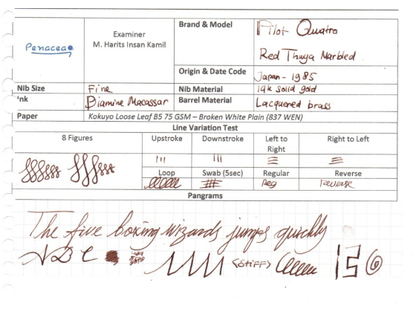 Panacea
Examiner
M. Harits Insan Kamil
Brand & Model
Pilot Quatro
Red Thuya Marbled
Origin & Date Code
Japan - 1985
Nib Size
Fine
Nib Material
14k solid gold
Ink
Diamine Macassar
Barrel Material
Lacquered brass
Paper
Kokuyo Loose Leaf B5 75 GSM – Broken White Plain (837 WEN)
Line Variation Test
8 Figures
Upstroke
Downstroke
Left to Right
Right to Left
Loop
Swab (5sec)
Regular
Reverse
Reg
Reverse
Pangrams
The five boxing wizards jumps quickly
<STIFF>